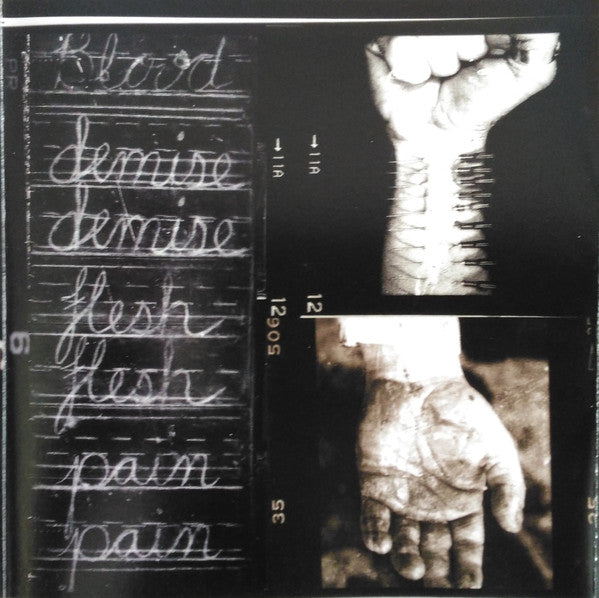 Blood
demise
demise
flesh
flesh
pain
pain
9
→11A
→11A
12905
12
35